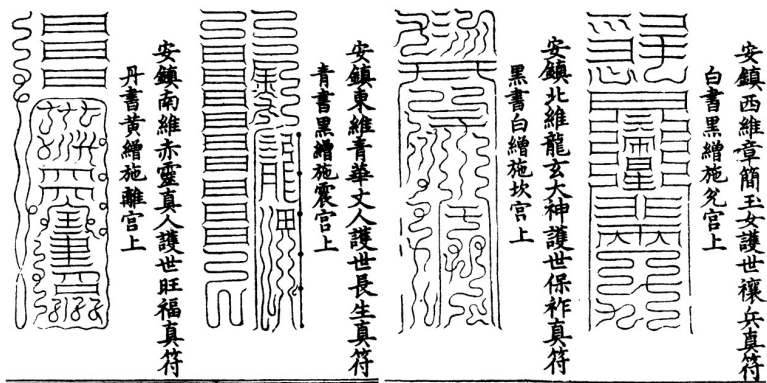 安鎮西維章簡玉女護世禳兵真符
白書黑繒施兌宮上
安鎮北維龍玄大神護世保祚真符
黑書白繒施坎宮上
安鎮東維青華丈人護世長生真符
青書黑繒施震宮上
安鎮南維赤靈真人護世旺福真符
丹書黃繒施離宮上